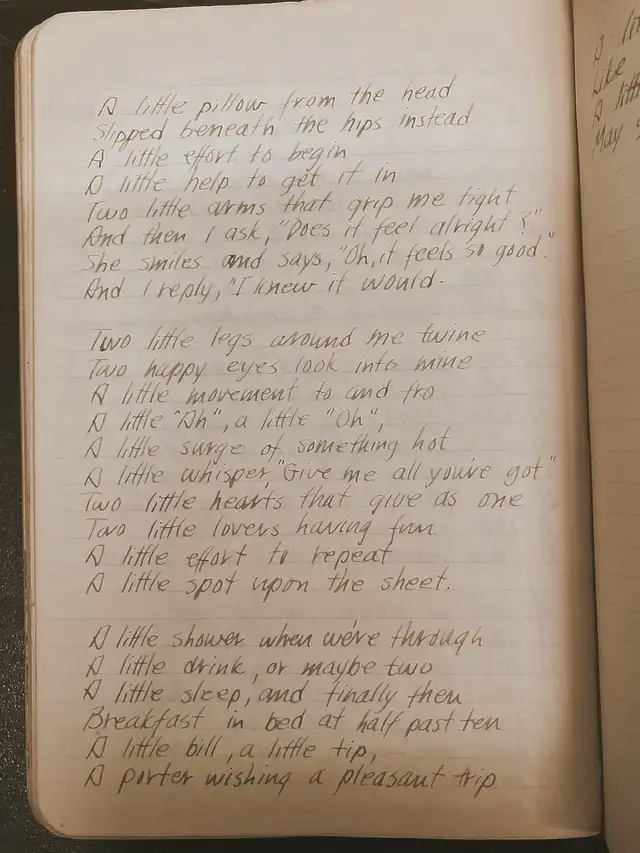 A little pillow from the head
Slipped beneath the hips instead
A little effort to begin
A little help to get it in
Two little arms that grip me tight
And then I ask, "Does it feel alright?"
She smiles and says, "Oh, it feels so good."
And I reply, "I knew it would.
Two little legs around me twine
Two happy eyes look into mine
A little movement to and fro
A little "Ah", a little "Oh",
A little surge of something hot
A little whisper, "Give me all you've got."
Two little hearts that give as one
Two little lovers having fun
A little effort to repeat
A little spot upon the sheet.
A little shower when we're through
A little drink, or maybe two
A little sleep, and finally then
Breakfast in bed at half past ten
A little bill, a little tip,
A porter wishing a pleasant trip
Like
A
May